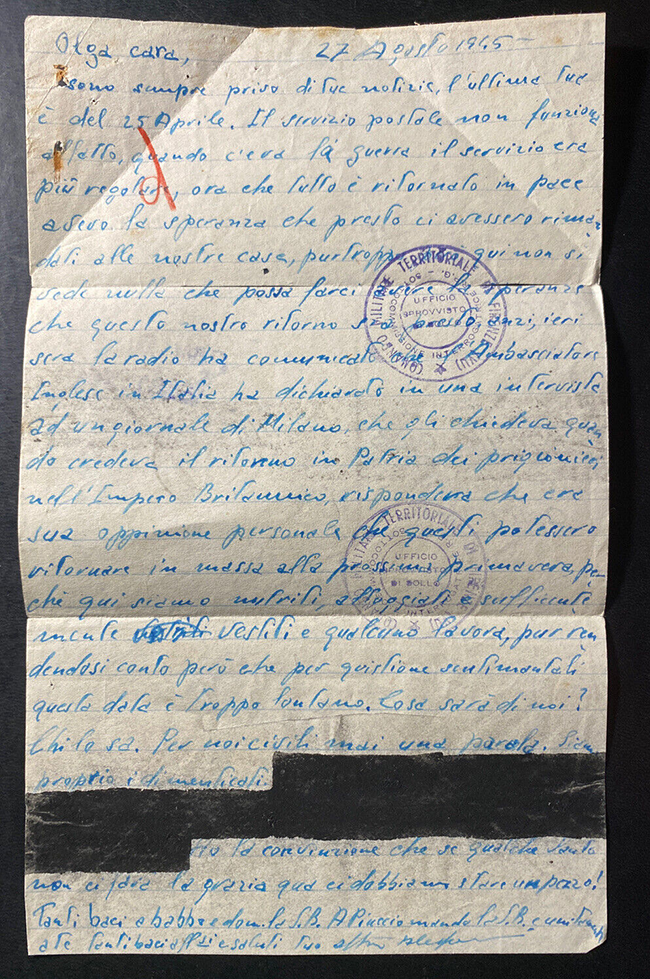 Olga cara, 27 Agosto 1945-
sono sempre privo di tue notizie, l'ultima tua
è del 25 Aprile. Il servizio postale non funziona
affatto, quando c'era la guerra il servizio era
più regolare, ora che tutto è ritornato in pace
avevo la speranza che presto ci avessero riman
dati alle nostre case, purtroppo qui non si
vede nulla che possa farci avere la speranza
che questo nostro ritorno sia presto, anzi, ieri
sera la radio ha comunicato che l'Ambasciatore
Inglese in Italia ha dichiarato in una intervista
ad un giornale di Milano, che gli chiedeva quan
do credeva il ritorno in Patria dei prigionieri
nell'Impero Britannico, rispondeva che era
sua oppinione personale che questi potessero
ritornare in massa alla prossima primavera, per
chè qui siamo nutriti, alloggiati e sufficente
mente vestiti e qualcuno lavora, pur ren
dendosi conto però che per quistione sentimentali
questa data è troppo lontano. Cosa sarà di noi?
Chi lo sa. Per noi civili mai una parola. Siamo
proprio i dimenticati
la convinzione che se qualche Santo
non ci farà la grazia qua ci dobbiamo stare un pezzo!
Tanti baci a babbo e dom. la S.B. A Piuccio manda la S.B. e
a te tanti baci affzi e saluti tuo
COMANDO MILITARE TERRITORIALE DI FIRENZE
UFFICIO
SPROVVISTO
DI BOLLO
MILITARE TERRITORIALE DI
UFFICIO
SPROVVISTO
DI BOLLO